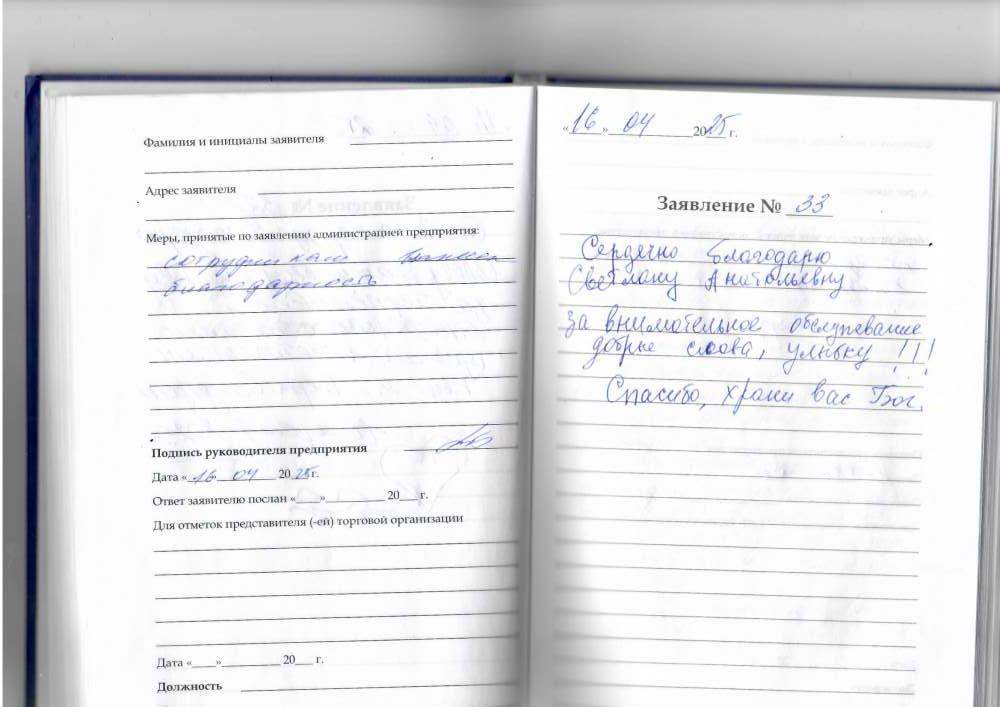 Фамилия и инициалы заявителя
Адрес заявителя
Меры, принятые по заявлению администрацией предприятия:
сотрудникам
благодарность
Подпись руководителя предприятия
Дата «16 04 2025г.
Ответ заявителю послан «___»__________ 20___ г.
Для отметок представителя (-ей) торговой организации
Дата «____»__________ 20___ г.
Должность
«16» 04 2025 г.
Заявление № 33
Сердечно благодарю
Светлану Анатольевну
за внимательное обслуневание
добрые слова, улыбку !!!
Спасибо, храни вас Бог.